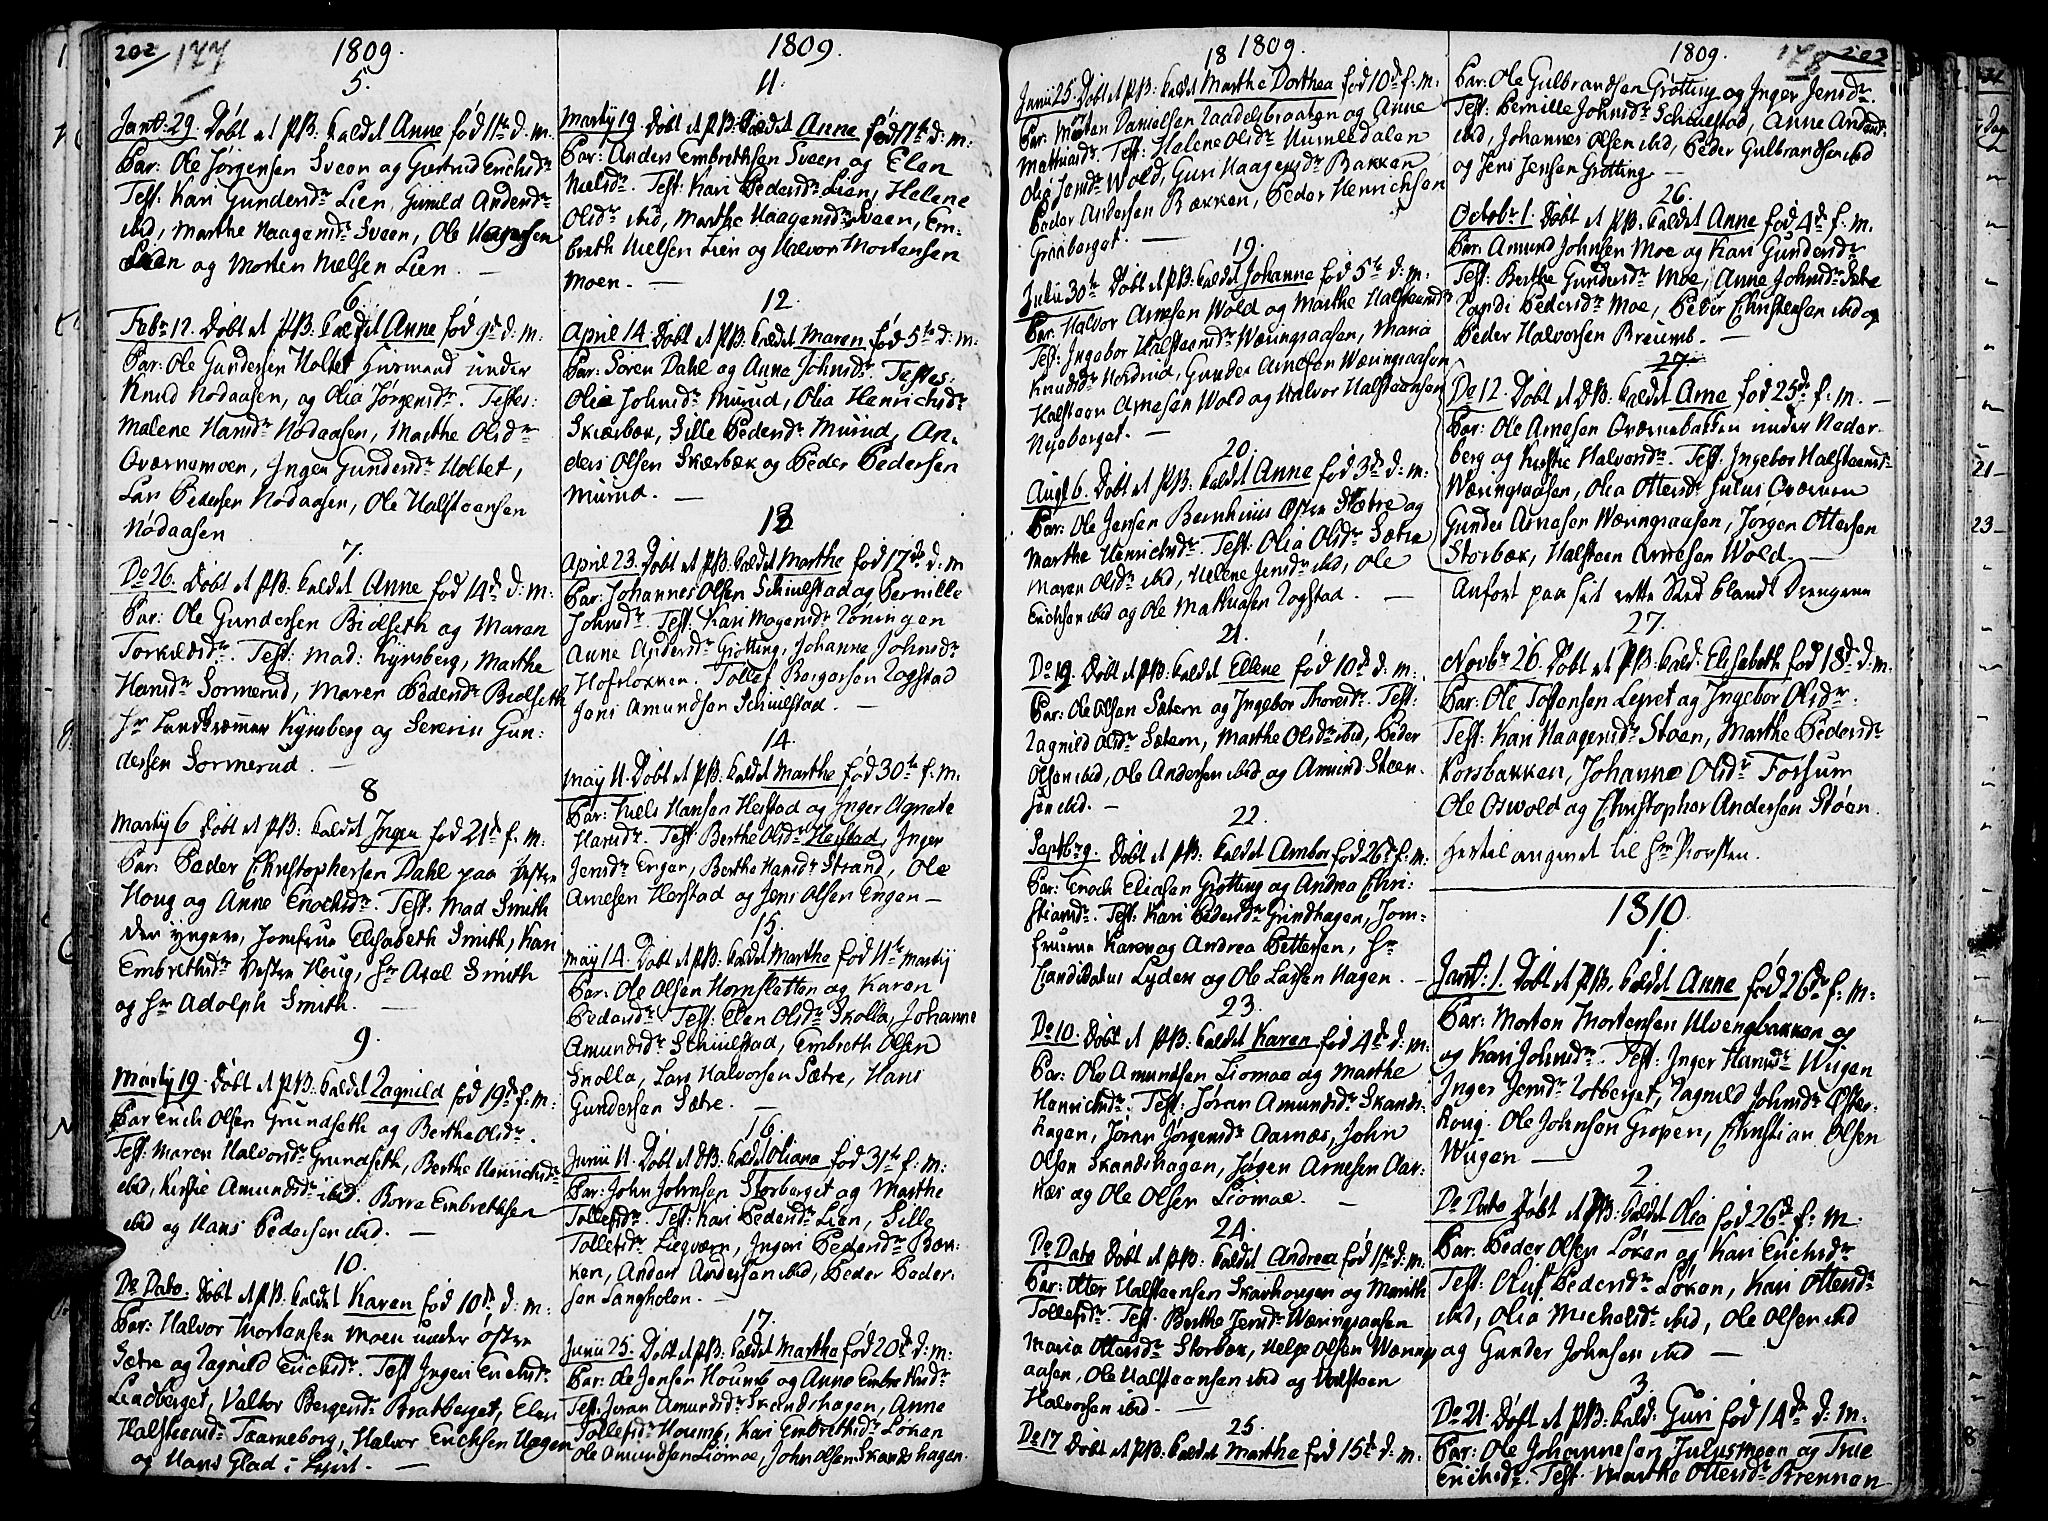 202 177
1809.
5.
Janr: 29. Döbt et PB: kaldet Anne fød 11te d: m.
Par: Ole Jörgensen Sveen og Giertrud Erichsdr
Test: Kari Gundersdr Lien, Gunild Andersdr
ibid, Marthe Haagensdr Sveen, Ole Haagensen
Lien og Morten Nielsen Lien. —
6.
Febr 12. Döbt et PB: kaldet Anne fød 9de d: m.
Par: Ole Gundersen Holtet Huusmand under
Knud Nodaasen, og Olia Jörgensdr. Testes:
Malene Hansdr Nodaasen, Marthe Olsdr
Qværnemoen, Inger Gundersdr Holtet,
Lars Pedersen Nodaasen, Ole Halsteensen
Nödaasen
7.
Do 26. Döbt et PB: kaldet Anne fød 14de d: m:
Par: Ole Gundersen Biölseth og Maren
Torkildsdr. Test: Mad: Kynsberg, Marthe
Hansdr Sormerud, Maren Pedersdr Biölseth
Hr Landkræmmer Kynsberg og Severin Gun-
dersen Sormerud. —
8
Martij 6 Döbt et PB: kaldet Inger fød 21de f: m:
Par: Peder Christophersen Dahl paa Vestre
Houg og Anne Enochsdr. Test: Mad Smith
den yngere, Jomfrue Elisabeth Smith, Kari
Embrethsdr Vestre Houg, Hr Axel Smith
og Hr Adolph Smith. —
9.
Martij 19. Döbt et PB. kaldet Ragnild fød 19de f: m:
Par Erich Olsen Grundseth og Berthe Olsdr.
Test: Maren Halvorsdr Grundseth, Berthe Henrichsdr
ibid, Kirstie Amundsdr ibid. Borre Embrethsen
ibid og Hans Pedersen ibid. —
10.
Do Dato. Döbt et PB: kaldet Karen fød 10de d: m:
Par: Halvor Mortensen Moen under östre
Sætre og Ragnild Erichsdr. Test Ingeri Erichsdr
Lindberget, Valbor Bergersdr Bratberget, Elen
Halsteensdr Taarneborg, Halvor Erichsen Hagen
og Hans Glad i Lyset. —
1809.
11.
Martij 19. Döbt et PB: kaldet Anne fød 17de d: m:
Par: Anders Embrethsen Sveen og Elen
Nielsdr. Test: Kari Pedersdr Lien, Helene
Olsdr ibid, Marthe Haagensdr Sveen, Em-
breth Nielsen Lien og Halvor Mortensen
Moen. —
12
April 14. Döbt et PB: kaldet Maren fød 5te d: m:
Par: Sören Dahl og Anne Johnsdr Testes:
Olia Johnsdr Murud, Olia Henrichsdr
Skiærbæk, Sille Pedersdr Murud, An-
ders Olsen Skærbæk og Peder Pedersen
Murud. —
13
April 23. Döbt et PB: kaldet Marthe fød 17de d. m
Par: Johannes Olsen Schiulstad og Pernille
Johnsdr. Test: Kari Mogensdr Röningen
Anne Andersdr Grötting, Johanne Johnsdr
Hofslokken. Tollef Borgersen Rogstad
Jens Amundsen Schiulstad. —
14.
May 11. Döbt et PB: kaldet Marthe fød 30te f. m.
Par: Niels Hansen Herstad og Inger Agnete
Hansdr. Test: Berthe Olsdr Herstad, Inger
Jensdr Engen, Berthe Hansdr Strand, Ole
Arnesen Herstad og Jens Olsen Engen —
15.
May 14. Döbt et PB: kaldet Marthe fød 11te Martij
Par: Ole Olsen Hornsletten og Karen
Pedersdr. Test: Elen Olsdr Skolla, Johanne
Amundsdr Schiulstad, Embreth Olsen
Skolla, Lars Halvorsen Sætre, Hans
Gundersen Sætre. —
16.
Junii 11. Döbt et PB: kaldet Oliana fød 31te f: m:
Par: John Johnsen Storberget og Marthe
Tollefsdr. Test: Kari Pedersdr Lien, Sille
Tollefsdr Liegværn, Ingeri Pedersdr Bæk-
ken, Anders Andersen ibid, Peder Peder-
sen Langholen. —
17.
Junii 25: Döbt et PB: kaldet Marthe fød 20de d: m:
Par: Ole Jensen Houms og Anne Embrethsdr
Test: Joran Amundsdr Skandshagen, Anne
Tollefsdr Houms, Kari Embrethsdr Löken
Ole Amundsen Liomoe, John Olsen Skandshagen.
1809.
18
Junii 25: Döbt et PB: kaldet Marthe Dorthea fød 10de f. m.
Par: Morten Danielsen Raadelsbraaten og Anne
Mathiasdr. Test: Helene Olsdr Humledalen
Olia Jensdr Wold, Guri Haagensdr Bakken
Peder Andersen Bækken, Peder Henrichsen
Graaberget. —
19.
Julii 30te Döbt et PB: kaldet Johanne fød 5te d: m.
Par: Halvor Arnesen Wold og Marthe Halsteensdr
Test: Ingebor Halsteensdr Wæringsaasen, Maria
Knudsdr Nordrud, Gunder Arnesen Wæringsaasen
Halsteen Arnesen Wold og Halvor Halsteensen
Nyeberget. —
20.
Augst 6. Döbt et PB: kaldet Anne fød 3de d: m:
Par: Ole Jensen Bernhuus Östre Sætre og
Marthe Henrichsdr. Test: Olia Olsdr Sætre
Maren Olsdr ibid, Helene Jensdr ibid, Ole
Erichsen ibid og Ole Mathiasen Rogstad. —
21.
Do 19. Döbt et PB: kaldet Ellene fød 10de d: m.
Par: Ole Olsen Sætern og Ingebor Thoresdr. Test:
Ragnild Olsdr Sætern, Marthe Olsdr ibid, Peder
Olsen ibid, Ole Andersen ibid og Amund Steen-
sen ibid. —
22.
Septbr 9. Döbt et PB: kaldet Ambor fød 26de f: m:
Par: Enoch Eliasen Grötting og Andrea Chri-
stiansdr. Test: Kari Pedersdr Grindhagen, Jom-
fruerne Karen og Andrea Pettersen, Hr
Candidatus Lyders og Ole Larsen Hagen. —
23.
Do 10. Döbt et PB: kaldet Karen fød 4de d: m:
Par: Ole Amundsen Liomoe og Marthe
Henrichsdr. Test: Joran Amundsdr Skands-
hagen, Joran Jørgensdr Aarnæs, John
Olsen Skandshagen, Jörgen Arnesen Aar-
næs og Ole Olsen Liomoe. —
24.
Do Dato Döbt et PB: kaldet Andrea fød 11te d: m:
Par: Otter Halsteensen Skarhougen og Marith
Tollefsdr. Test. Berthe Jensdr Wæringsaasen
Maria Ottersdr Storbæk, Helge Olsen Wærings-
aasen, Ole Halsteensen ibid og Halsteen
Halvorsen ibid. —
25.
Do 17 Döbt et PB: kaldet Marthe fød 15de d: m.
1809. 178 203
Par: Ole Gulbrandsen Grötting og Inger Jensdr.
Test: Pernille Johnsdr Schiulstad, Anne Andersdr
ibid, Johannes Olsen ibid, Peder Gulbrandsen ibid
og Jens Jensen Grötting. —
26.
Octobr 1. Döbt et PB: kaldet Anne fød 4de f. m.
Par: Amund Johnsen Moe og Kari Gundersdr
Test: Berthe Gundersdr Moe, Anne Johnsdr Sætre
Randi Pedersdr Moe, Peder Christensen ibid og
Peder Halvorsen Breumb. —
27.
Do 12. Döbt et PB: kaldet Arne fød 25de f. m. —
Par: Ole Arnesen Qværnebakken under Neder-
berg og Kirstie Halvorsdr. Test: Ingebor Halsteensdr
Wæringsaasen, Olia Ottersdr Julus Qværnen
Gunder Arnesen Wæringsaasen, Jörgen Ottersen
Storbæk, Halsteen Arnesen Wold. —
Anfört paa sit rette Sted blandt Drengene
27.
Novbr 26. Döbt et PB: kald: Elisabeth fød 18de d: m.
Par: Ole Tostensen Leret og Ingebor Olsdr.
Test: Kari Haagensdr Stöen, Marthe Pedersdr
Korsbakken, Johanne Olsdr Forsum
Ole Oswold og Christopher Andersen Stöen.
Hertil angivet til Hr Provsten.
1810.
1.
Janr: 1. Döbt et PB. kaldet Anne fød 26de f: m:
Par: Morten Mortensen Ulvengbakken og
og Kari Johnsdr. Test: Inger Hansdr Wügen
Inger Jensdr Rotberget, Ragnild Johnsdr Öster-
houg. Ole Johnsen Gropen, Christian Olsen
Wügen —
2.
Do Dato Döbt et PB: kaldet Olia fød 26de f: m.
Par: Peder Olsen Löken og Kari Erichsdr
Test: Oluf Pedersdr Löken, Kari Ottersdr
ibid, Olia Michelsdr ibid, Ole Olsen ibid
og Gunder Johnsen ibid —
3.
Do 21. Döbt et PB: kald: Guri fød 14de d: m.
Par: Ole Johannesen Julusmoen og Trie
Erichsdr. Test: Marthe Ottersdr Brennen